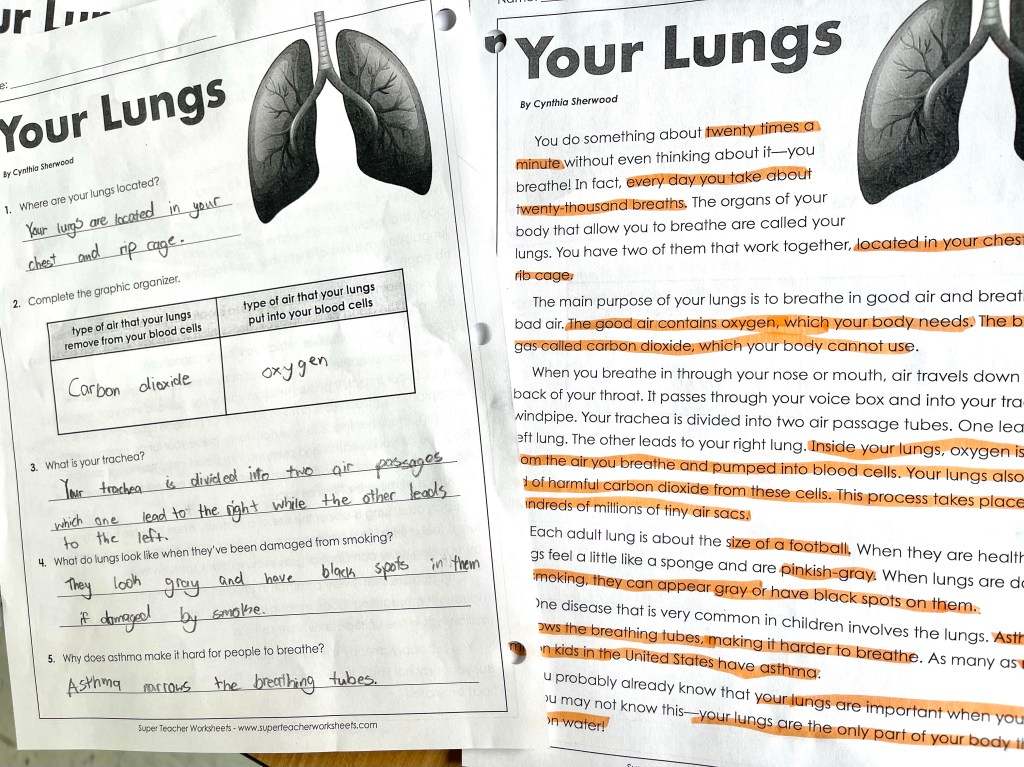 Your Lungs
By Cynthia Sherwood
1. Where are your lungs located?
Your lungs are located in your
chest and rip cage.
2. Complete the graphic organizer.
type of air that your lungs
remove from your blood cells
type of air that your lungs
put into your blood cells
Carbon dioxide
oxygen
3. What is your trachea?
Your trachea is divided into two air passages
which one lead to the right while the other leads
to the left.
4. What do lungs look like when they've been damaged from smoking?
They look gray and have black spots in them
if damaged by smoke.
5. Why does asthma make it hard for people to breathe?
Asthma narrows the breathing tubes.
Super Teacher Worksheets - www.superteacherworksheets.com
Your Lungs
By Cynthia Sherwood
You do something about twenty times a
minute without even thinking about it—you
breathe! In fact, every day you take about
twenty-thousand breaths. The organs of your
body that allow you to breathe are called your
lungs. You have two of them that work together, located in your chest
rib cage.
The main purpose of your lungs is to breathe in good air and breat
bad air. The good air contains oxygen, which your body needs. The b
gas called carbon dioxide, which your body cannot use.
When you breathe in through your nose or mouth, air travels down
back of your throat. It passes through your voice box and into your tra
windpipe. Your trachea is divided into two air passage tubes. One lea
eft lung. The other leads to your right lung. Inside your lungs, oxygen is
om the air you breathe and pumped into blood cells. Your lungs also
d of harmful carbon dioxide from these cells. This process takes place
ndreds of millions of tiny air sacs.
Each adult lung is about the size of a football. When they are health
gs feel a little like a sponge and are pinkish-gray. When lungs are da
moking, they can appear gray or have black spots on them.
One disease that is very common in children involves the lungs. Asth
ows the breathing tubes, making it harder to breathe. As many as
n kids in the United States have asthma.
u probably already know that your lungs are important when you
ou may not know this—your lungs are the only part of your body th
on water!